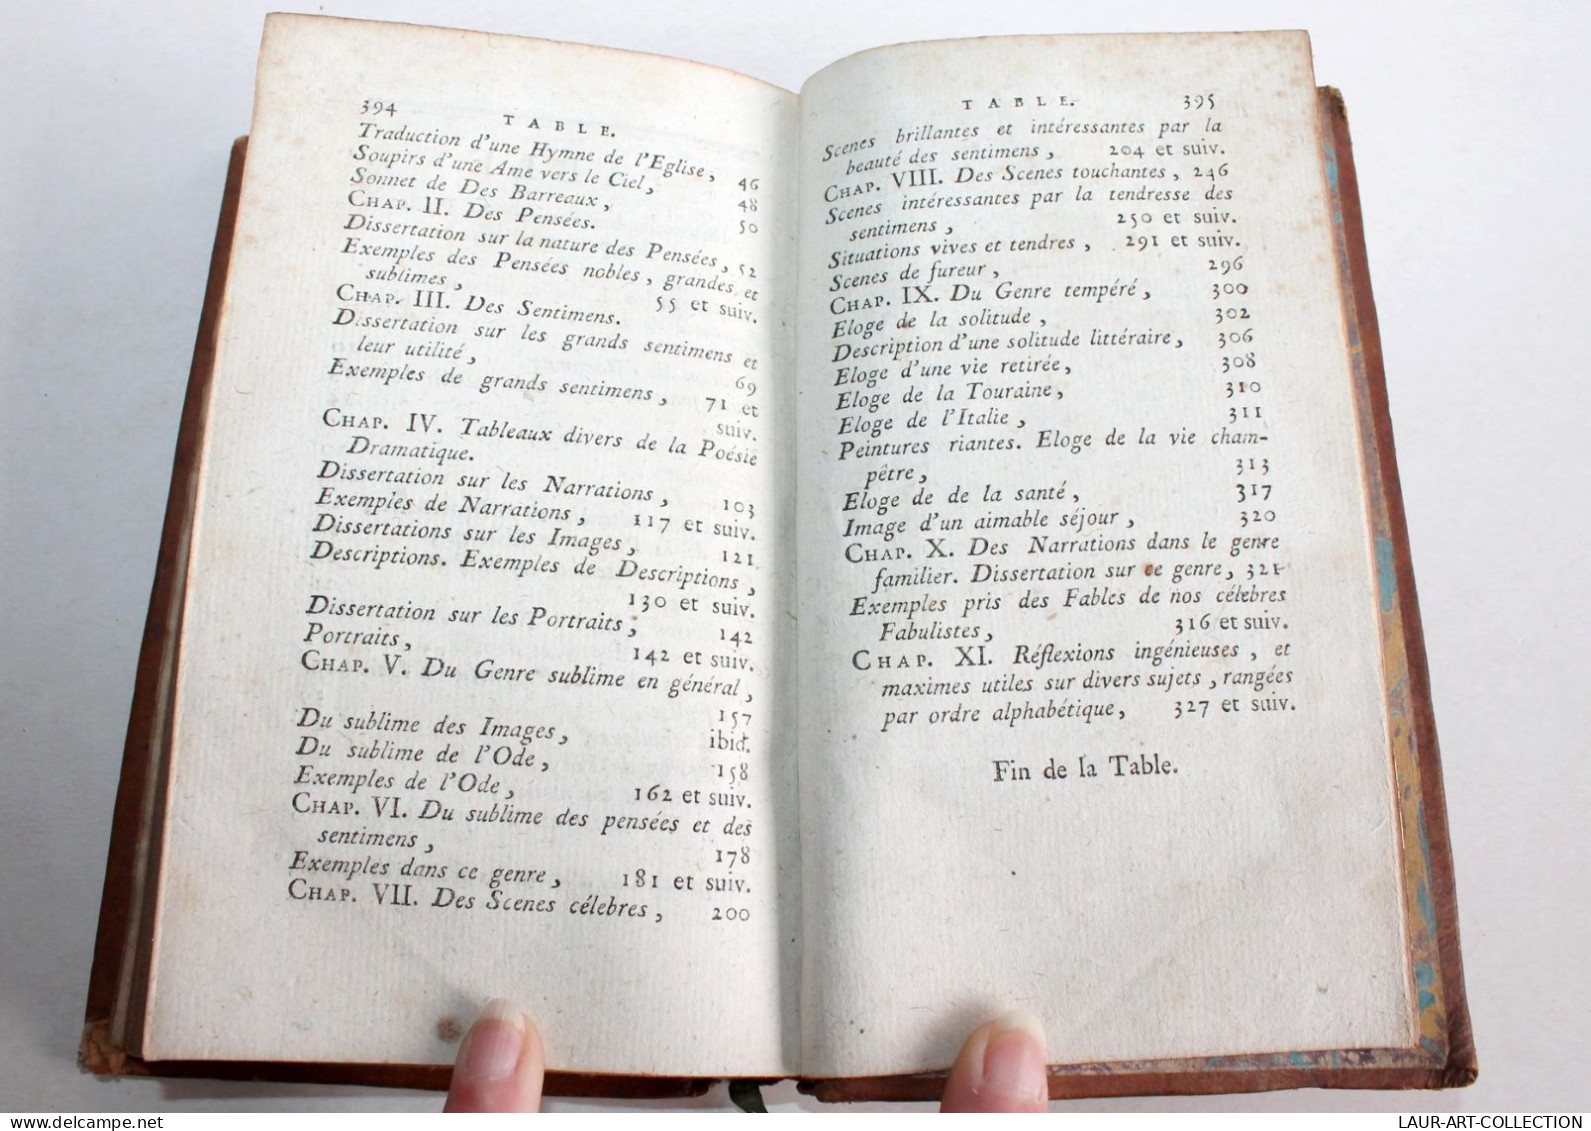 394
TABLE.
Traduction d'une Hymne de l'Eglise, 46
Soupirs d'une Ame vers le Ciel, 48
Sonnet de Des Barreaux, 50
CHAP. II. Des Pensées.
Dissertation sur la nature des Pensées, 52
Exemples des Pensées nobles, grandes et
sublimes, 55 et suiv.
CHAP. III. Des Sentimens.
Dissertation sur les grands sentimens et
leur utilité, 69
Exemples de grands sentimens, 71 et
suiv.
CHAP. IV. Tableaux divers de la Poésie
Dramatique.
Dissertation sur les Narrations, 103
Exemples de Narrations, 117 et suiv.
Dissertations sur les Images, 121
Descriptions. Exemples de Descriptions,
130 et suiv.
Dissertation sur les Portraits, 142
Portraits, 142 et suiv.
CHAP. V. Du Genre sublime en général,
157
Du sublime des Images, ibid.
Du sublime de l'Ode, 158
Exemples de l'Ode, 162 et suiv.
CHAP. VI. Du sublime des pensées et des
sentimens, 178
Exemples dans ce genre, 181 et suiv.
CHAP. VII. Des Scenes célebres, 200
TABLE. 395
Scenes brillantes et intéressantes par la
beauté des sentimens, 204 et suiv.
CHAP. VIII. Des Scenes touchantes, 246
Scenes intéressantes par la tendresse des
sentimens, 250 et suiv.
Situations vives et tendres, 291 et suiv.
Scenes de fureur, 296
CHAP. IX. Du Genre tempéré, 300
Eloge de la solitude, 302
Description d'une solitude littéraire, 306
Eloge d'une vie retirée, 308
Eloge de la Touraine, 310
Eloge de l'Italie, 311
Peintures riantes. Eloge de la vie cham-
pêtre, 313
Eloge de de la santé, 317
Image d'un aimable séjour, 320
CHAP. X. Des Narrations dans le genre
familier. Dissertation sur ce genre, 321
Exemples pris des Fables de nos célebres
Fabulistes, 316 et suiv.
CHAP. XI. Réflexions ingénieuses, et
maximes utiles sur divers sujets, rangées
par ordre alphabétique, 327 et suiv.
Fin de la Table.
delcampe.net
LAUR-ART-COLLECTION